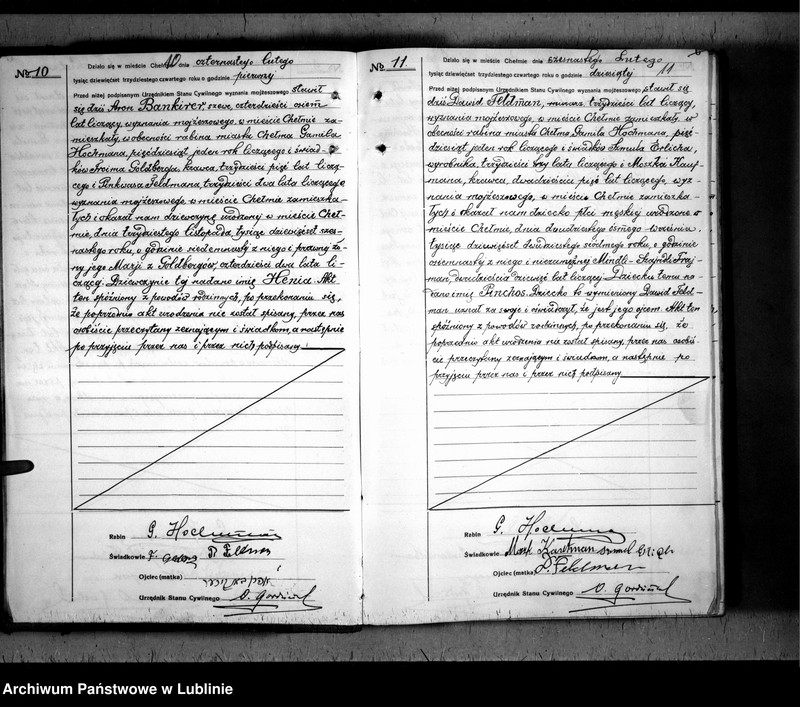 № 10
Działo się w mieście Chełmie dnia czternastego lutego
tysiąc dziewięćset trzydziestego czwartego roku o godzinie pierwszej
Przed niżej podpisanym Urzędnikiem Stanu Cywilnego wyznania mojżeszowego stawił
się dziś Aron Bankirer, szewc, czterdzieści osiem
lat liczący, wyznania mojżeszowego, w mieście Chełmie za-
mieszkały, w obecności rabina miasta Chełma Gamila
Hochmana, pięćdziesiąt jeden rok liczącego i świad-
ków Froima Goldberga, krawca, trzydzieści pięć lat liczą-
cego i Pinkwasa Feldmana, trzydzieści dwa lata liczącego
wyznania mojżeszowego w mieście Chełmie zamieszka-
łych i okazał nam dziewczynę urodzoną w mieście Cheł-
mie, dnia trzydziestego listopada, tysiąc dziewięćset szes-
nastego roku, o godzinie siedemnastej z niego i prawnej żo-
ny jego Marji z Goldbergów, czterdzieści dwa lata li-
czącej. Dziewczynie tej nadano imię Henia. Akt
ten spóźniony z powodów rodzinnych, po przekonaniu się,
że poprzednio akt urodzenia nie został spisany, przez nas
osobiście przeczytany zeznającym i świadkom, a następnie
po przyjęciu przez nas i przez nich podpisany
Rabin G. Hochman
Świadkowie
P. Feldman
Ojciec (matka)
Urzędnik Stanu Cywilnego
№ 11
Działo się w mieście Chełmie dnia szesnastego lutego
tysiąc dziewięćset trzydziestego czwartego roku o godzinie dziesiątej 11
Przed niżej podpisanym Urzędnikiem Stanu Cywilnego wyznania mojżeszowego stawił się
dziś Dawid Feldman, trzydzieści lat liczący,
wyznania mojżeszowego, w mieście Chełmie zamieszkały, w
obecności rabina miasta Chełma Gamila Hochmana, pięć-
dziesiąt jeden rok liczącego i świadków Szmula Erlicha,
wyrobnika, trzydzieści trzy lata liczącego i Moszka Kauf-
mana, krawca, dwadzieścia pięć lat liczącego, wyz-
nania mojżeszowego, w mieście Chełmie zamieszka-
łych i okazał nam dziecko płci męskiej urodzone w
mieście Chełmie, dnia dwudziestego ósmego września,
tysiąc dziewięćset dwudziestego siódmego roku, o godzinie
osiemnastej z niego i niezamężnej Mindli-Szajndli Fraj-
man, dwadzieścia dziewięć lat liczącej. Dziecku temu na-
dano imię Pinchos. Dziecko to wymieniony Dawid Feld-
man uznał za swoje i oświadczył, że jest jego ojcem. Akt ten
spóźniony z powodów rodzinnych, po przekonaniu się, że
poprzednio akt urodzenia nie został spisany, przez nas osobi-
ście przeczytany zeznającym i świadkom, a następnie po
przyjęciu przez nas i przez nich podpisany
Rabin G. Hochman
Świadkowie Moszk Kaufman Szmul Erlich
Ojciec (matka) D. Feldman
Urzędnik Stanu Cywilnego
Archiwum Państwowe w Lublinie